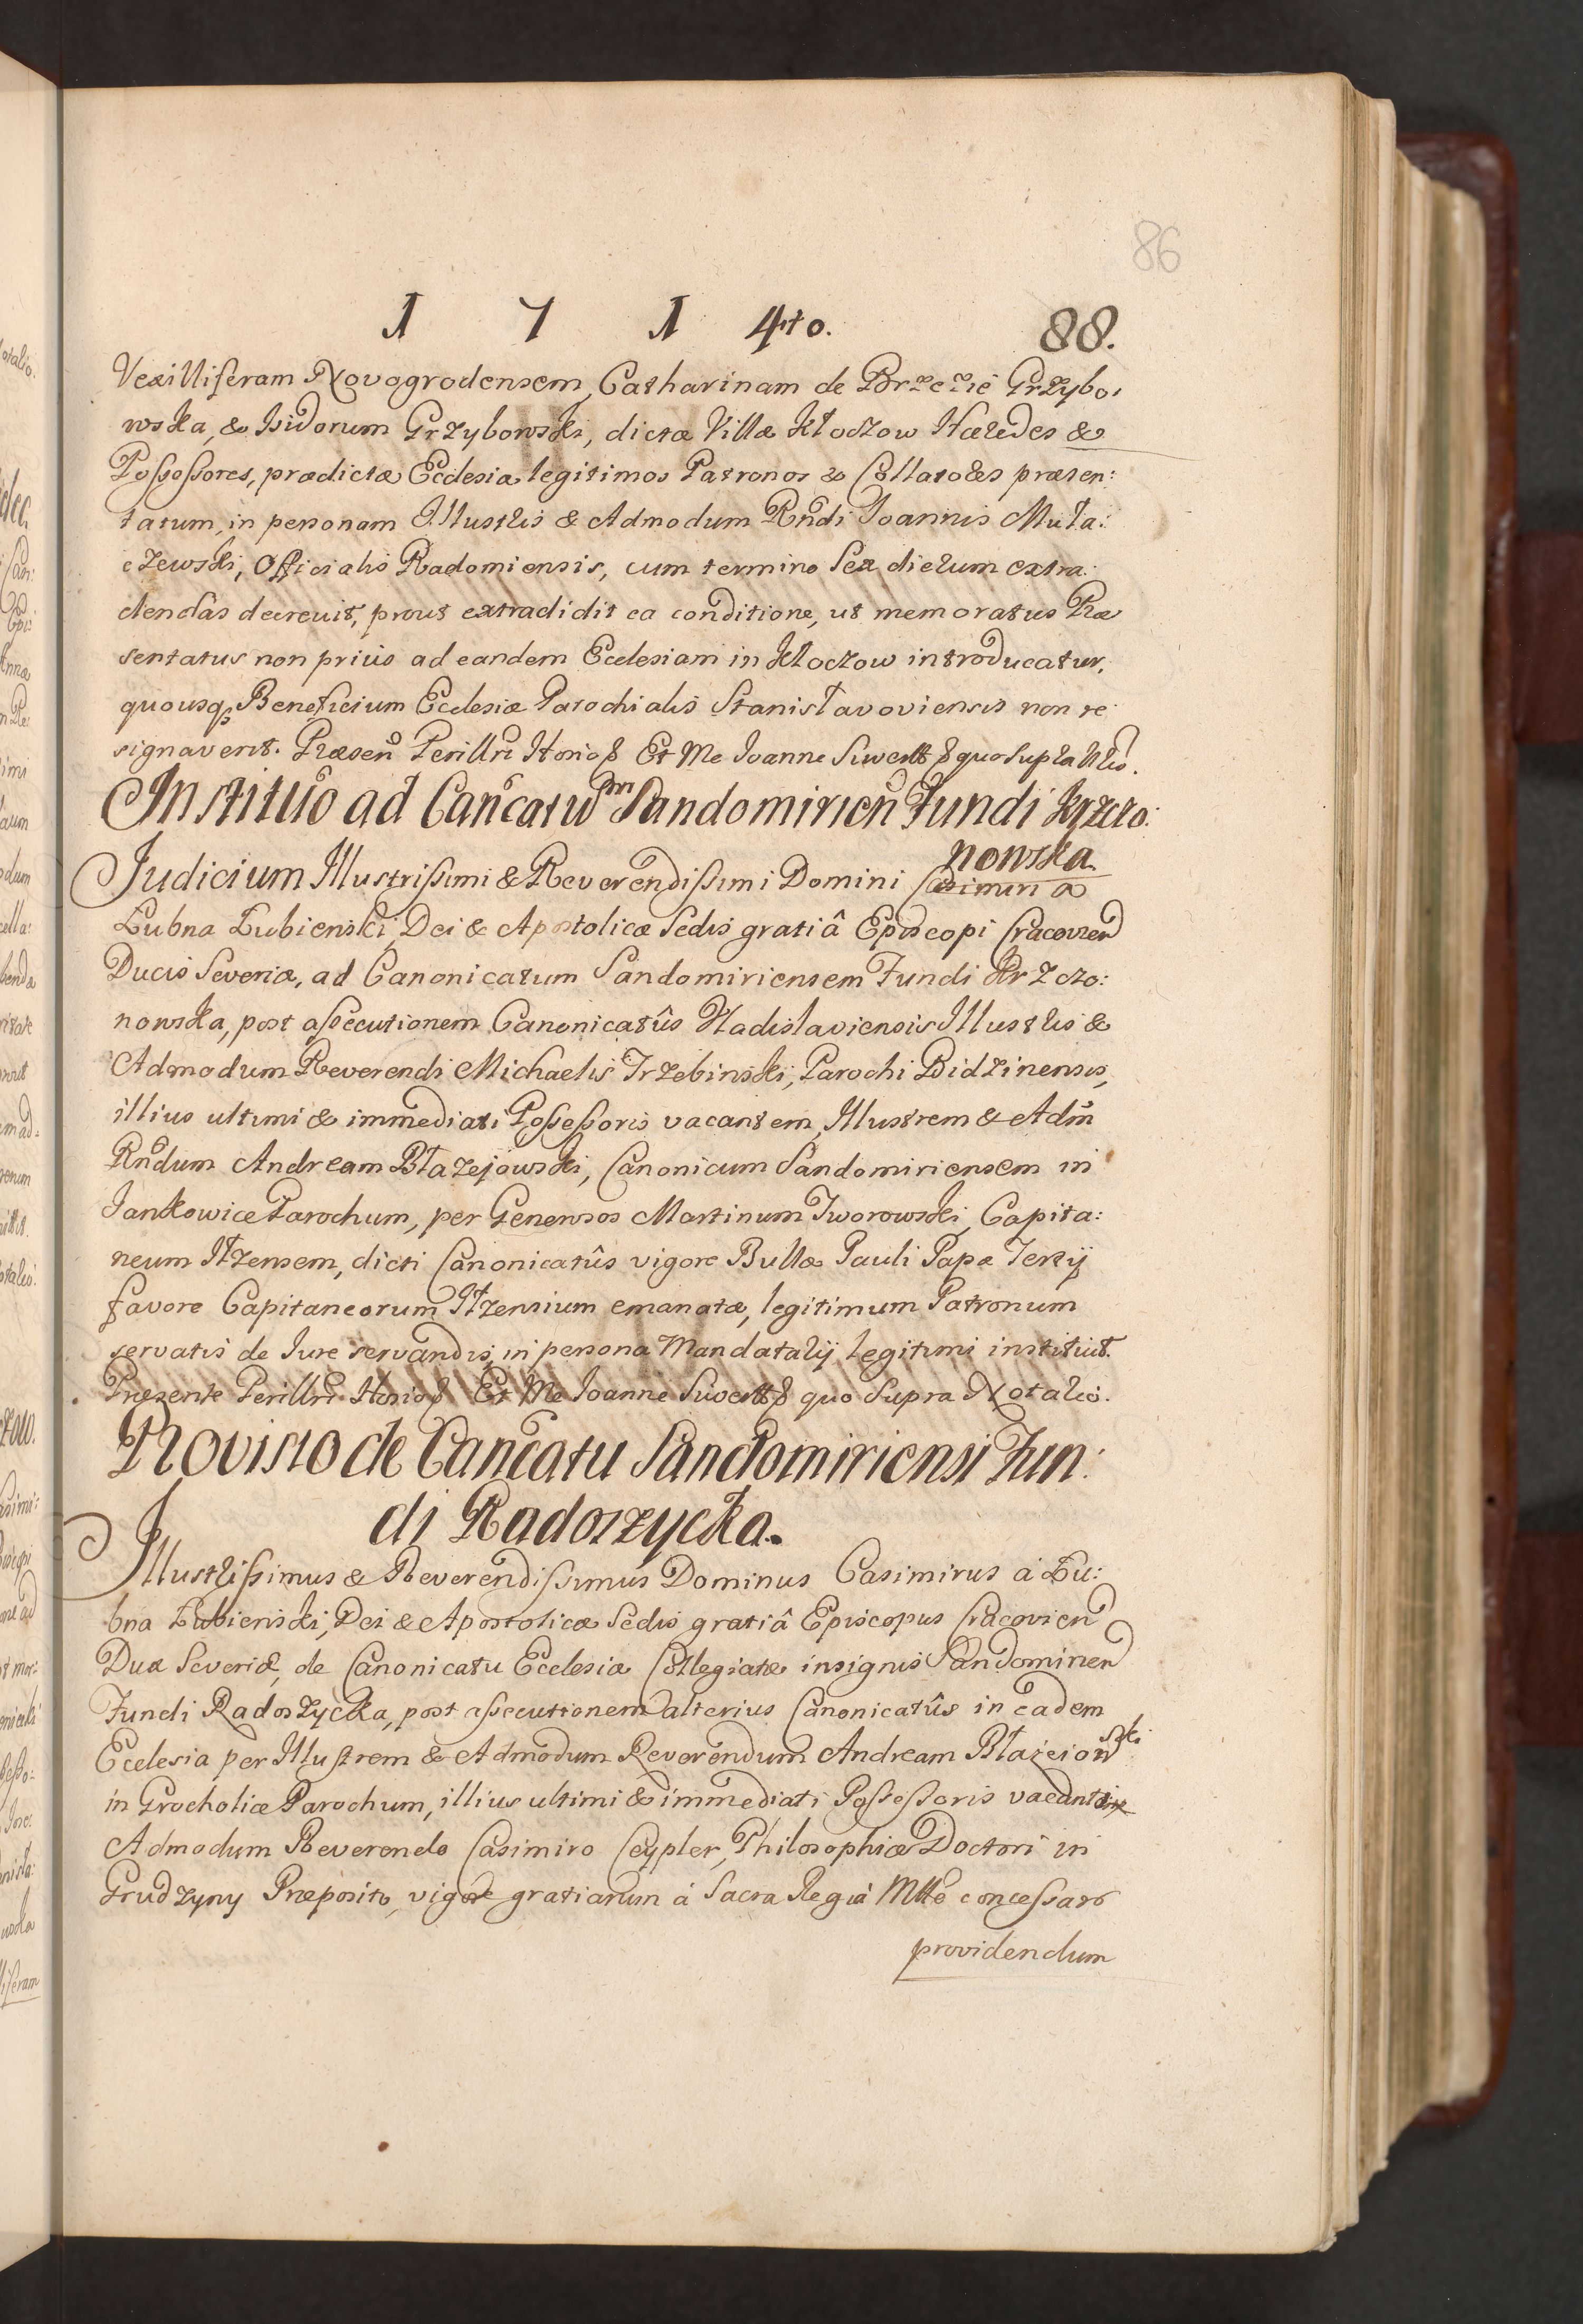 86
1 7 1 4to. 88.
Vexilliferam Novogrodensem, Catharinam de Brzezie Grzybo:
wska, & Isidorum Grzybowski, dictæ Villæ Kłoczow Hæredes &
Possossores, prædictæ Ecclesiæ legitimos Patronos & Collatores præsen:
tatum, in personam Illustris & Admodum Rndi Joannis Muła:
czewski, Officialis Radomiensis, cum termino Sex dierum extra:
dendas decrevit, prout extradidit ea conditione, ut memoratus Præ
sentatus non priùs ad eandem Ecclesiam in Kłoczow introducatur,
quousq; Beneficium Ecclesiæ Parochialis Stanisławoviensis non re
signaverit. Præsen Perillri Honiof Et Me Joanne Siwertt quo Supra Nrio.
Institutio ad Cancatum Sandomirien Fundi Krzczo:
nowska.
Judicium Illustrissimi & Reverendissimi Domini Casimiri à
Łubna Łubienski, Dei & Apostolicæ Sedis gratiâ Episcopi Cracovien
Ducis Severiæ, ad Canonicatum Sandomiriensem Fundi Krzczo:
nowska, post assecutionem Canonicatûs Vladislaviensis Illustris &
Admodum Reverendi Michaelis Trzebinski, Parochi Bidzinensis,
illius ultimi & immediati Possessoris vacantem, Illustrem & Adm
Rndum Andream Błazejowski, Canonicum Sandomiriensem in
Jankowice Parochum, per Generosos Martinum Tworowski, Capita:
neum Iłzensem, dicti Canonicatûs vigore Bullæ Pauli Papæ Tertij
favore Capitaneorum Iłzensium emanatæ, legitimum Patronum
servatis de Jure servandis, in persona Mandatarij legitimi instituit.
Præsente Perillri Honiof Et Me Joanne Siwertt quo Supra Notario.
Provisio de Cancatu Sandomiriensi Fun:
di Radoszycka.
Illustrissimus & Reverendissimus Dominus Casimirus à Łu:
bna Łubienski, Dei & Apostolicæ Sedis gratiâ Episcopus Cracovien
Dux Severiæ, de Canonicatu Ecclesiæ Collegiatæ insignis Sandomirien
Fundi Radoszycka, post assecutionem alterius Canonicatûs in eadem
Ecclesia per Illustrem & Admodum Reverendum Andream Błażeiowski
in Grocholice Parochum, illius ultimi & immediati Possessoris vacante
Admodum Reverendo Casimiro Ceypler, Philosophiæ Doctori in
Grudzyny Præposito, vigore gratiarum à Sacra Regiâ Mtte concessaro
providendum